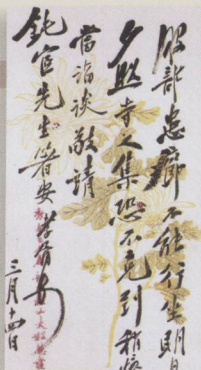 股部患癤不能行坐明日
夕照寺之集恐不克到稍痊
當詣談敬請
鈍宦先生箸安
三月十四日